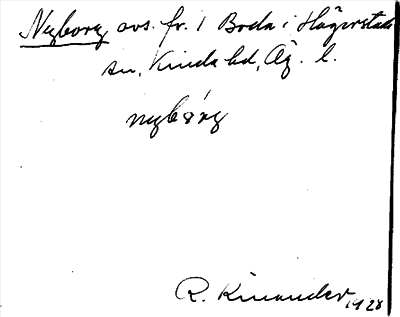 Nyborg avs. fr. 1 Boda i Hägerstads
sn, Kinda hd, Ög. l.
nybórg
R. Kinander 1928